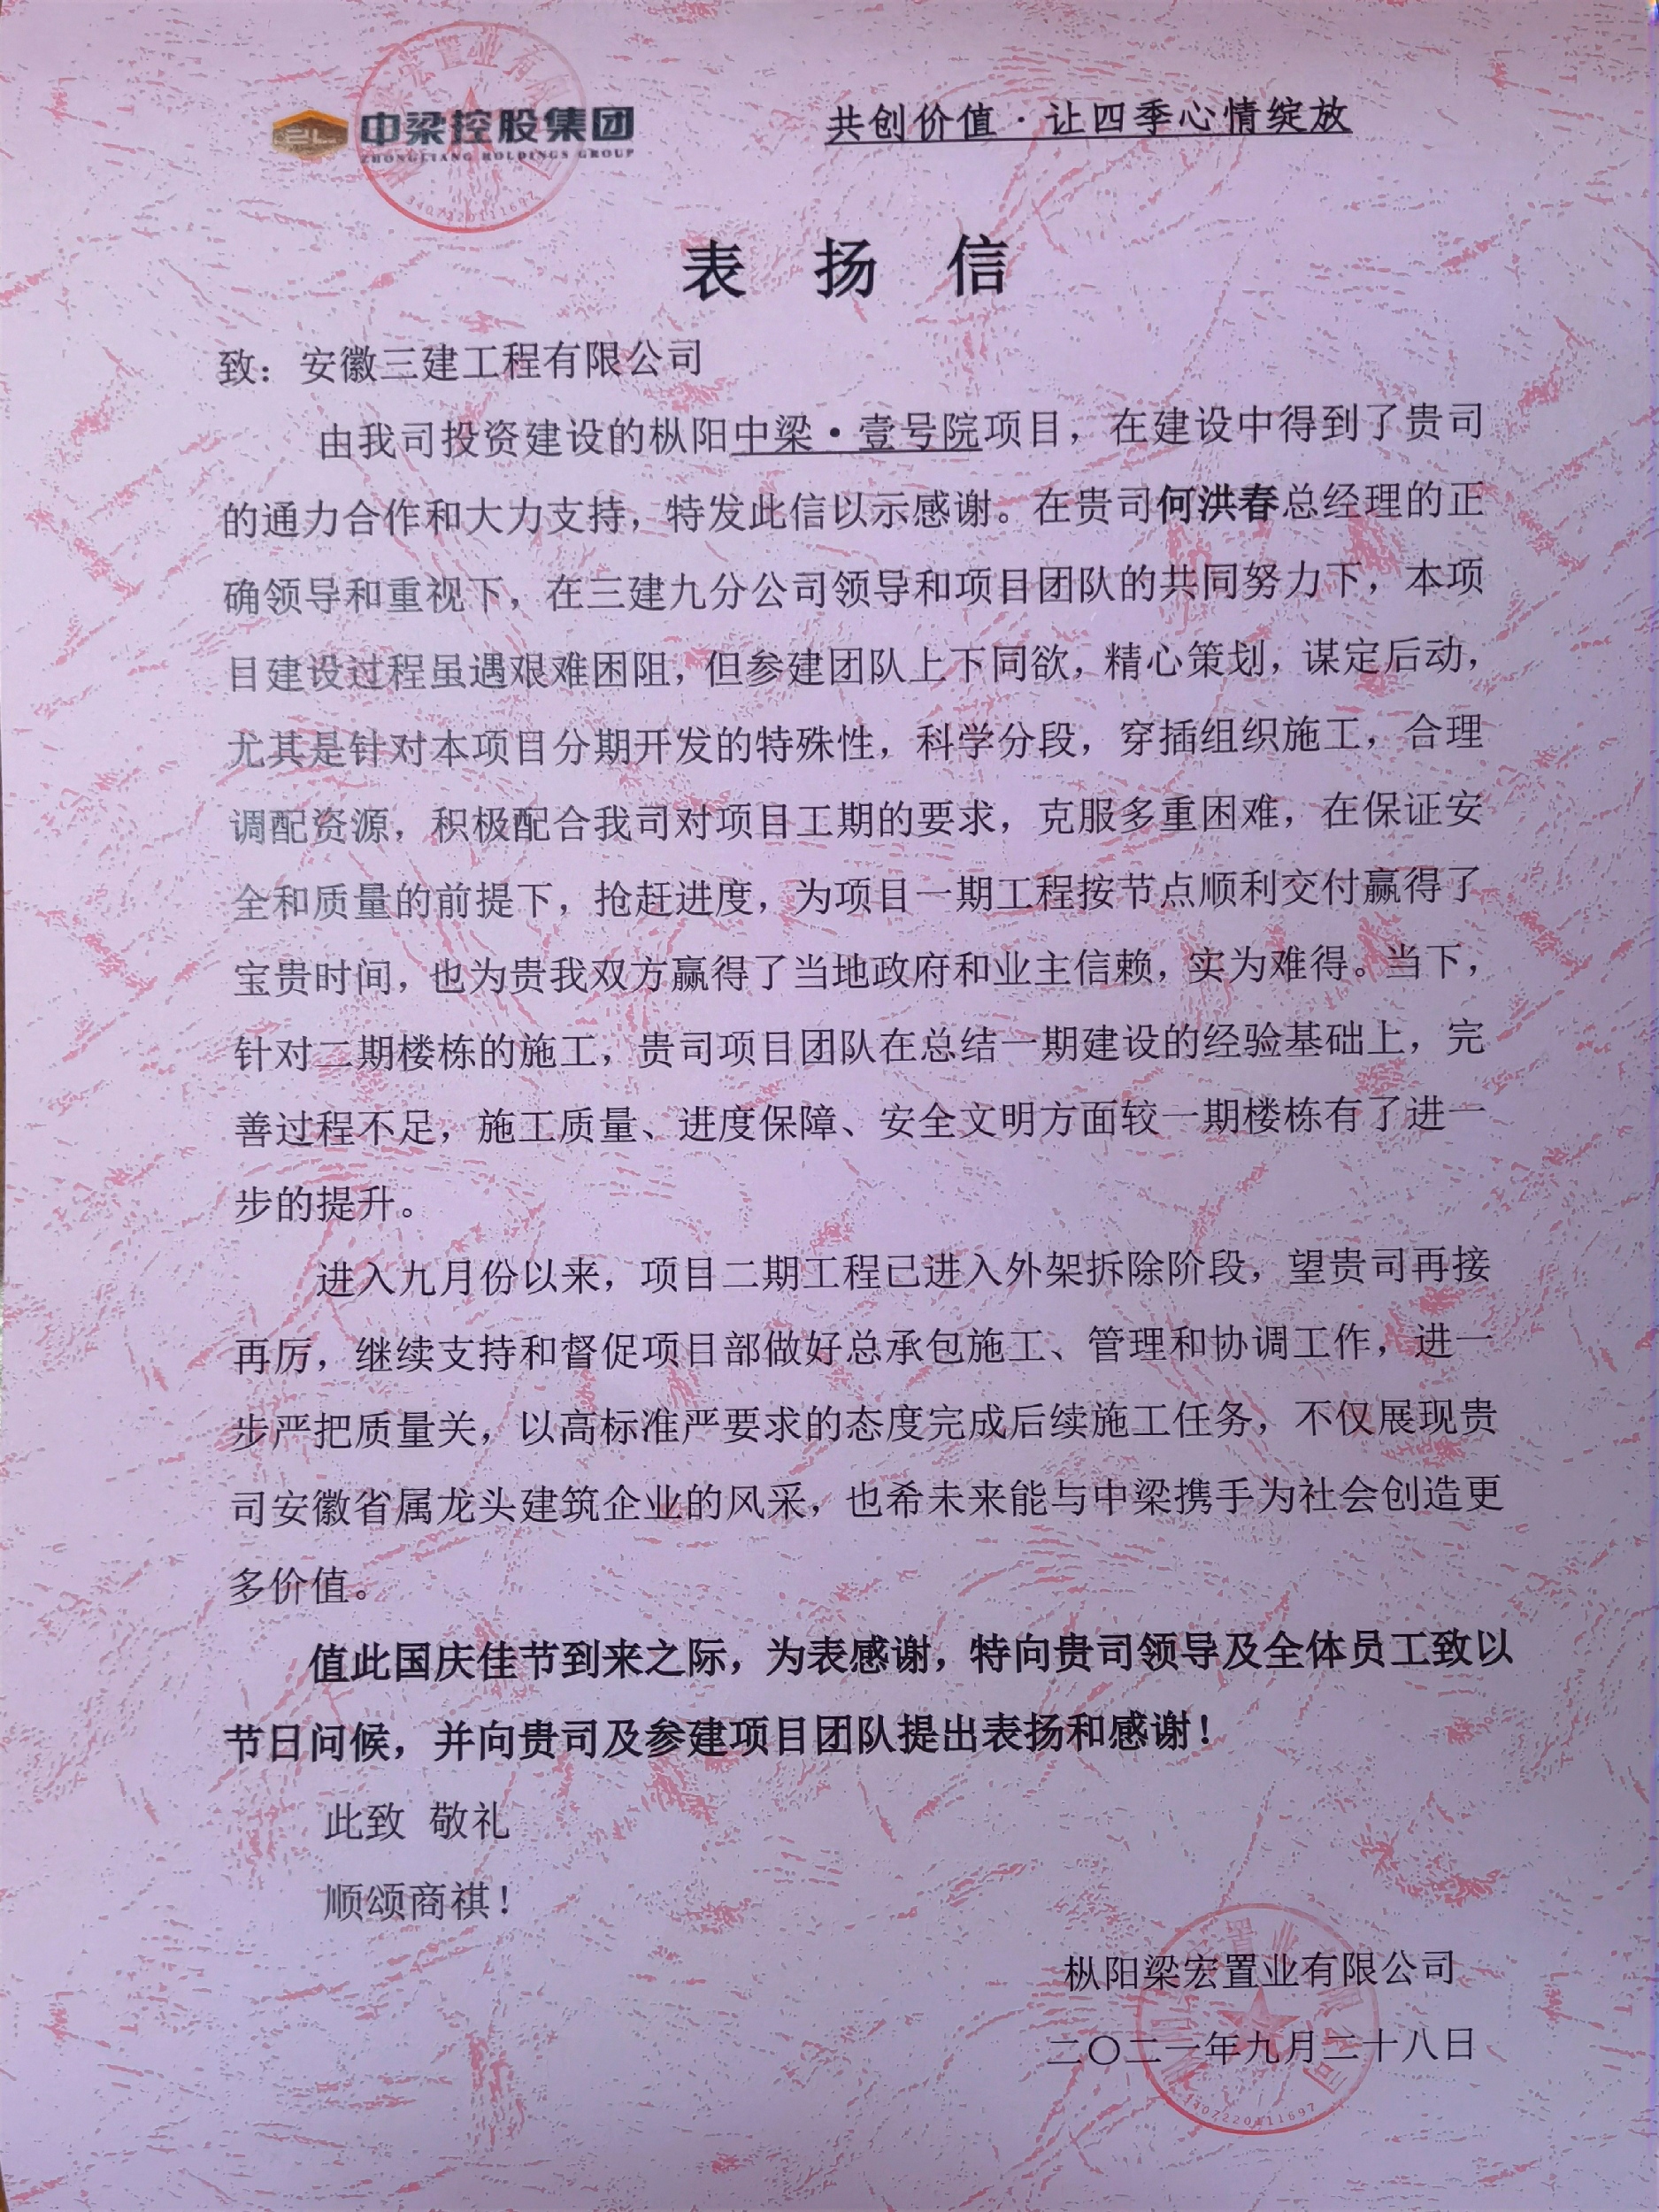 中梁控股集团
ZHONGLIANG HOLDINGS GROUP
共创价值·让四季心情绽放
表 扬 信
致：安徽三建工程有限公司
由我司投资建设的枞阳中梁·壹号院项目，在建设中得到了贵司
的通力合作和大力支持，特发此信以示感谢。在贵司何洪春总经理的正
确领导和重视下，在三建九分公司领导和项目团队的共同努力下，本项
目建设过程虽遇艰难困阻，但参建团队上下同欲，精心策划，谋定后动，
尤其是针对本项目分期开发的特殊性，科学分段，穿插组织施工，合理
调配资源，积极配合我司对项目工期的要求，克服多重困难，在保证安
全和质量的前提下，抢赶进度，为项目一期工程按节点顺利交付赢得了
宝贵时间，也为贵我双方赢得了当地政府和业主信赖，实为难得。当下，
针对二期楼栋的施工，贵司项目团队在总结一期建设的经验基础上，完
善过程不足，施工质量、进度保障、安全文明方面较一期楼栋有了进一
步的提升。
进入九月份以来，项目二期工程已进入外架拆除阶段，望贵司再接
再厉，继续支持和督促项目部做好总承包施工、管理和协调工作，进一
步严把质量关，以高标准严要求的态度完成后续施工任务，不仅展现贵
司安徽省属龙头建筑企业的风采，也希未来能与中梁携手为社会创造更
多价值。
值此国庆佳节到来之际，为表感谢，特向贵司领导及全体员工致以
节日问候，并向贵司及参建项目团队提出表扬和感谢！
此致 敬礼
顺颂商祺！
枞阳梁宏置业有限公司
二〇二一年九月二十八日
3407220111697